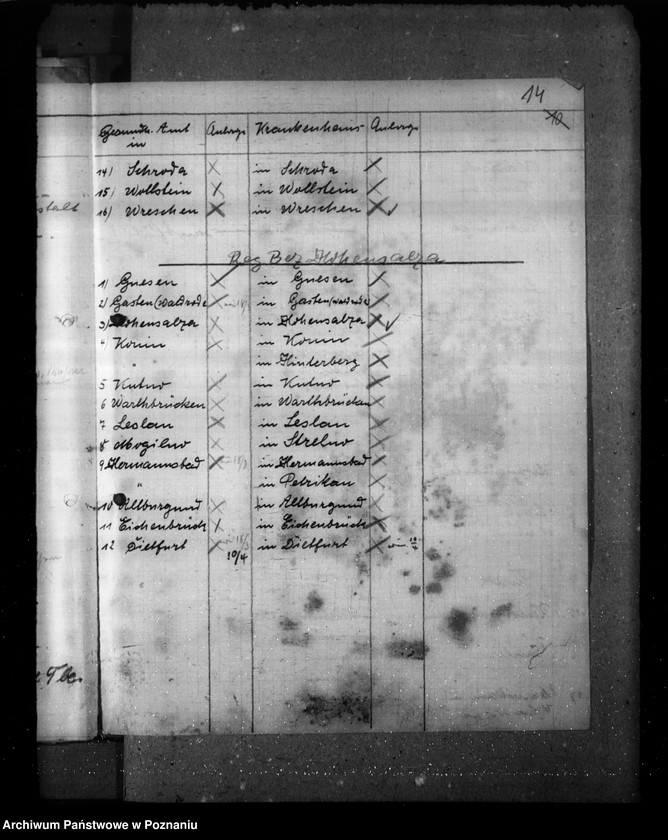 14
10
Gesundh. Amt Anberg Krankenhaus Anberg
in
14) Schroda in Schroda
15) Wollstein in Wollstein
16) Wreschen in Wreschen
Reg Bez Hohensalza
1) Gnesen in Gnesen
2) Gasten (Waldrode in Gasten (Waldrode)
3) Hohensalza in Hohensalza
4) Konin in Konin
" in Hinterberg
5 Kutno in Kutno
6 Warthbrücken in Warthbrücken
7 Leslau in Leslau
8 Mogilno in Strelno
9 Hermannsbad in Hermannsbad
" in Petrikau
10 Altburgund in Altburgund
11 Eichenbrück in Eichenbrück
12 Dietfurt in Dietfurt
10/4
stalt
Tbc.
Archiwum Państwowe w Poznaniu